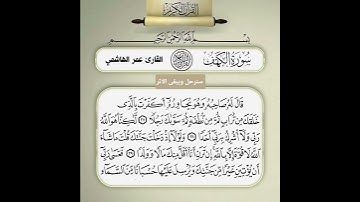 القرآن الكريم
بسم الله الرحمن الرحيم
سورة الكهف القارئ: عمر الهاشمي
سنرحل ويبقى الاثر
قَالَ لَهُۥ صَاحِبُهُۥ وَهُوَ يُحَاوِرُهُۥٓ أَكَفَرْتَ بِٱلَّذِى
خَلَقَكَ مِن تُرَابٍ ثُمَّ مِن نُّطْفَةٍ ثُمَّ سَوَّىٰكَ رَجُلًا ٣٧ لَّٰكِنَّا۠ هُوَ ٱللَّهُ
رَبِّى وَلَآ أُشْرِكُ بِرَبِّىٓ أَحَدًا ٣٨ وَلَوْلَآ إِذْ دَخَلْتَ جَنَّتَكَ قُلْتَ مَا شَآءَ
ٱللَّهُ لَا قُوَّةَ إِلَّا بِٱللَّهِ إِن تَرَنِ أَنَا۠ أَقَلَّ مِنكَ مَالًا وَوَلَدًا ٣٩ فَعَسَىٰ رَبِّىٓ
أَن يُؤْتِيَنِ خَيْرًا مِّن جَنَّتِكَ وَيُرْسِلَ عَلَيْهَا حُسْبَانًا مِّنَ ٱلسَّمَآءِ